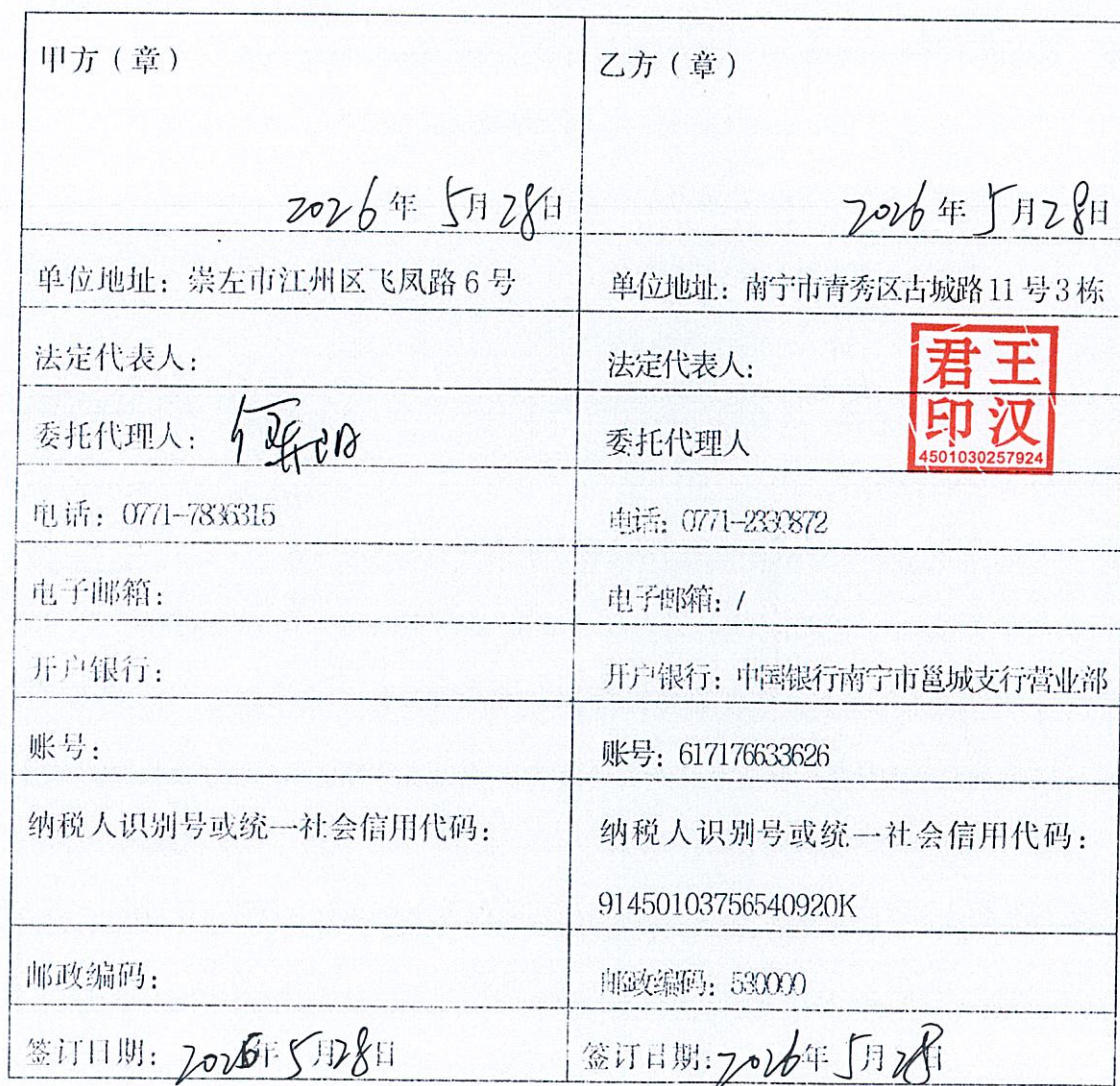 甲方（章）
2026年 5月28日
乙方（章）
2026年 5月28日
单位地址：崇左市江州区飞凤路6号
单位地址：南宁市青秀区古城路11号3栋
法定代表人：
法定代表人：
君王
印汉
4501030257924
委托代理人：
委托代理人
电话：0771-7836315
电话：0771-2330872
电子邮箱：
电子邮箱：/
开户银行：
开户银行：中国银行南宁市邕城支行营业部
账号：
账号：617176633626
纳税人识别号或统一社会信用代码：
纳税人识别号或统一社会信用代码：
91450103756540920K
邮政编码：
邮政编码：530000
签订日期：2026年5月28日
签订日期：2026年5月28日